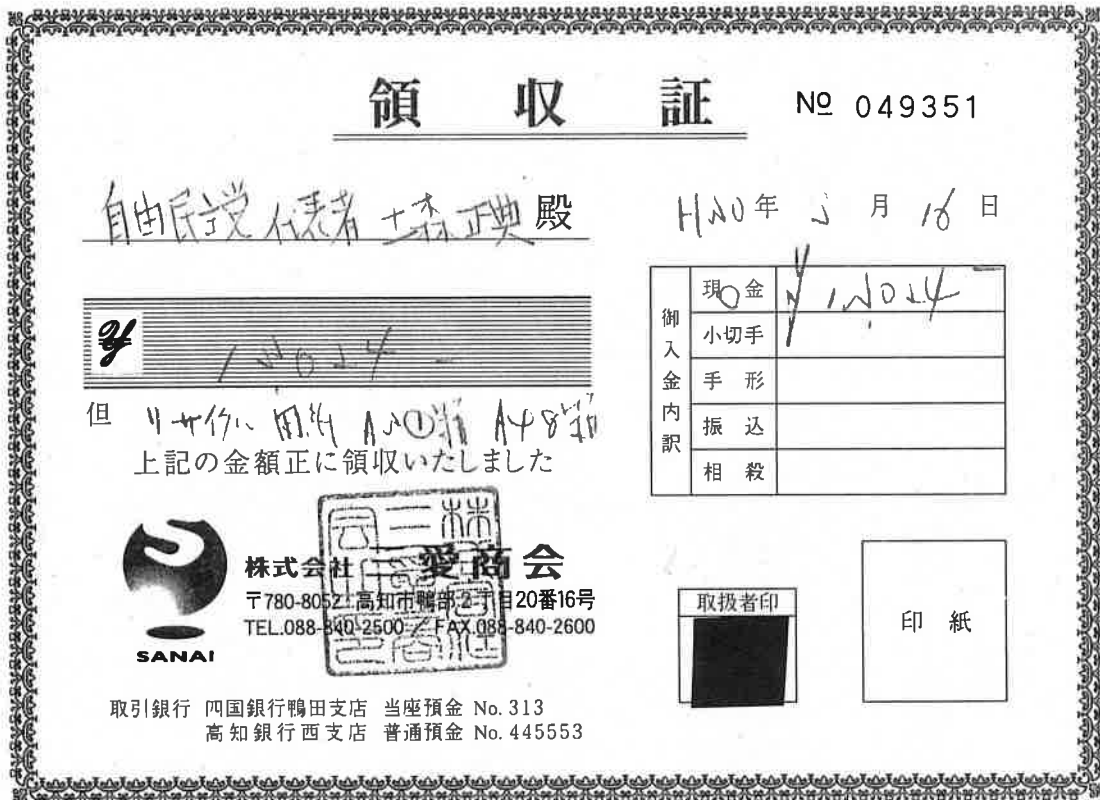 領 収 証
№ 049351
自由民主党 代表者 土森 正典 殿
H20年 5月 16日
¥
但 リサイクル 用紙
上記の金額正に領収いたしました
御入金内訳
現 金
小切手
手 形
振 込
相 殺
株式会社 三愛商会
〒780-8052 高知市鴨部2丁目20番16号
TEL.088-840-2500 / FAX.088-840-2600
SANAI
取扱者印
印 紙
取引銀行 四国銀行鴨田支店 当座預金 No. 313
高知銀行西支店 普通預金 No. 445553